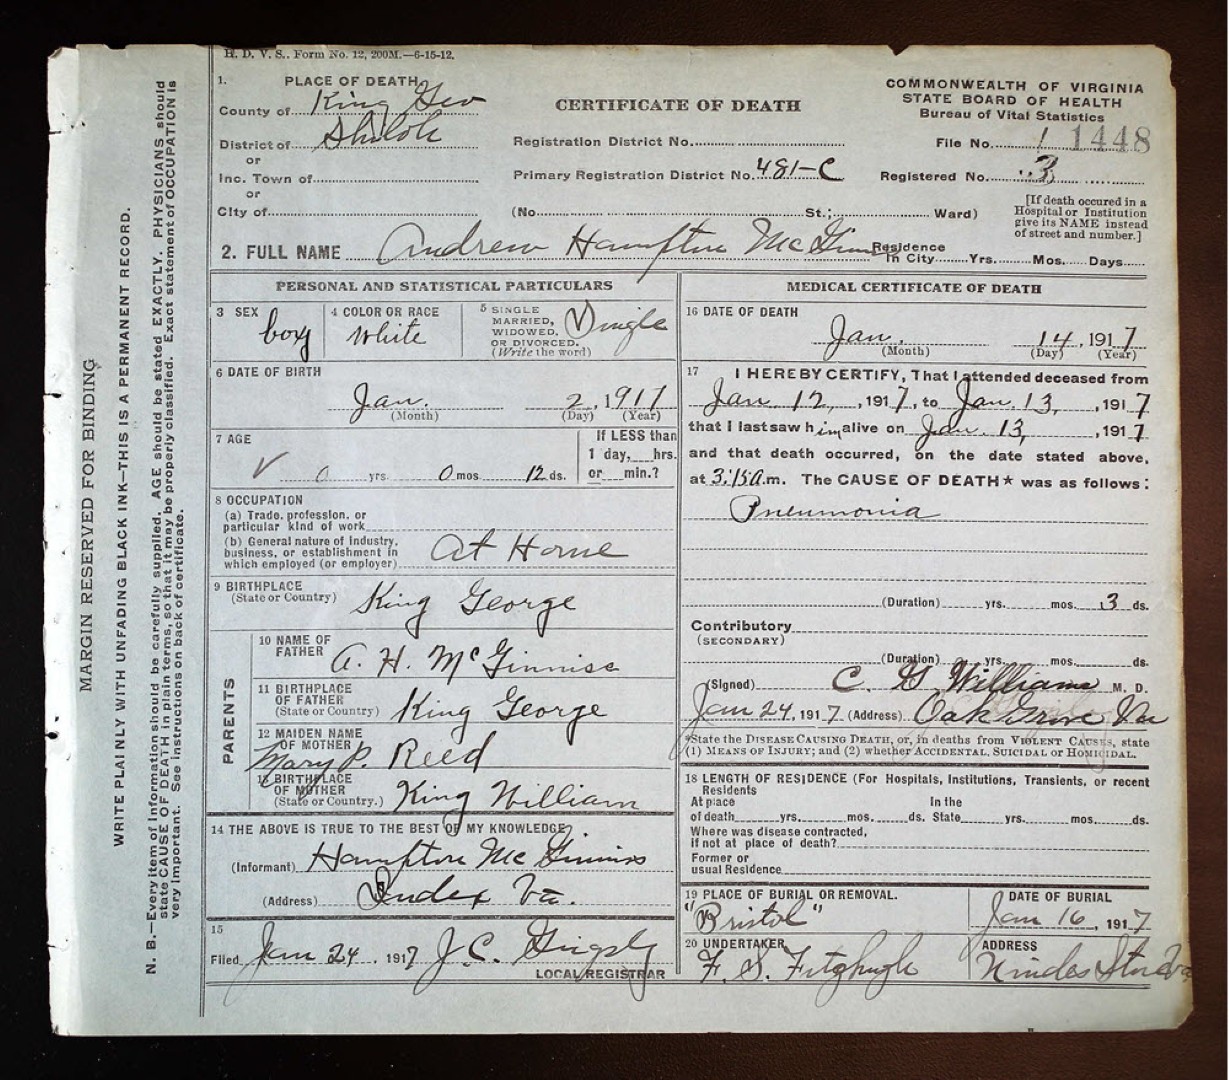 H. D. V. S.. Form No. 12, 200M.—6-15-12.
1. PLACE OF DEATH
County of King Geo
District of Shiloh
or
Inc. Town of
or
City of
CERTIFICATE OF DEATH
Registration District No.
Primary Registration District No. 481-C
(No. St.; Ward)
COMMONWEALTH OF VIRGINIA
STATE BOARD OF HEALTH
Bureau of Vital Statistics
File No. 1 1448
Registered No. 3
[If death occured in a
Hospital or Institution
give its NAME instead
of street and number.]
2. FULL NAME Andrew Hampton McGinnis
Residence
In City Yrs. Mos. Days
PERSONAL AND STATISTICAL PARTICULARS
3 SEX boy
4 COLOR OR RACE White
5 SINGLE
MARRIED,
WIDOWED,
OR DIVORCED.
(Write the word) Single
6 DATE OF BIRTH
Jan. 2, 1917
(Month) (Day) (Year)
7 AGE
0 yrs. 0 mos. 12 ds.
If LESS than
1 day, hrs.
or min.?
8 OCCUPATION
(a) Trade, profession, or
particular kind of work
(b) General nature of industry,
business, or establishment in
which employed (or employer) At Home
9 BIRTHPLACE
(State or Country) King George
PARENTS
10 NAME OF
FATHER A. H. McGinniss
11 BIRTHPLACE
OF FATHER
(State or Country) King George
12 MAIDEN NAME
OF MOTHER Mary P. Reed
13 BIRTHPLACE
OF MOTHER
(State or Country.) King William
14 THE ABOVE IS TRUE TO THE BEST OF MY KNOWLEDGE.
(Informant) Hampton McGinniss
(Address) Index Va.
15
Filed Jan 24, 1917 J. C.
LOCAL REGISTRAR
MEDICAL CERTIFICATE OF DEATH
16 DATE OF DEATH
Jan. 14, 1917
(Month) (Day) (Year)
17 I HEREBY CERTIFY, That I attended deceased from
Jan 12, 1917, to Jan. 13, 1917
that I last saw him alive on Jan. 13, 1917
and that death occurred, on the date stated above,
at 3:15 a.m. The CAUSE OF DEATH* was as follows:
Pneumonia
(Duration) yrs. mos. 3 ds.
Contributory
(SECONDARY)
(Duration) yrs. mos. ds.
(Signed) C. G Williams M. D.
Jan 24, 1917 (Address) Oak Grove Va
*State the DISEASE CAUSING DEATH, or, in deaths from VIOLENT CAUSES, state
(1) MEANS OF INJURY; and (2) whether ACCIDENTAL, SUICIDAL or HOMICIDAL.
18 LENGTH OF RESIDENCE (For Hospitals, Institutions, Transients, or recent
Residents
At place In the
of death yrs. mos. ds. State yrs. mos. ds.
Where was disease contracted,
if not at place of death?
Former or
usual Residence
19 PLACE OF BURIAL OR REMOVAL.
"Bristol"
DATE OF BURIAL
Jan 16, 1917
20 UNDERTAKER
F. S. Fitzhugh
ADDRESS
Nindes Store Va
MARGIN RESERVED FOR BINDING
WRITE PLAINLY WITH UNFADING BLACK INK—THIS IS A PERMANENT RECORD.
N. B.—Every item of information should be carefully supplied. AGE should be stated EXACTLY. PHYSICIANS should
state CAUSE OF DEATH in plain terms, so that it may be properly classified. Exact statement of OCCUPATION is
very important. See instructions on back of certificate.